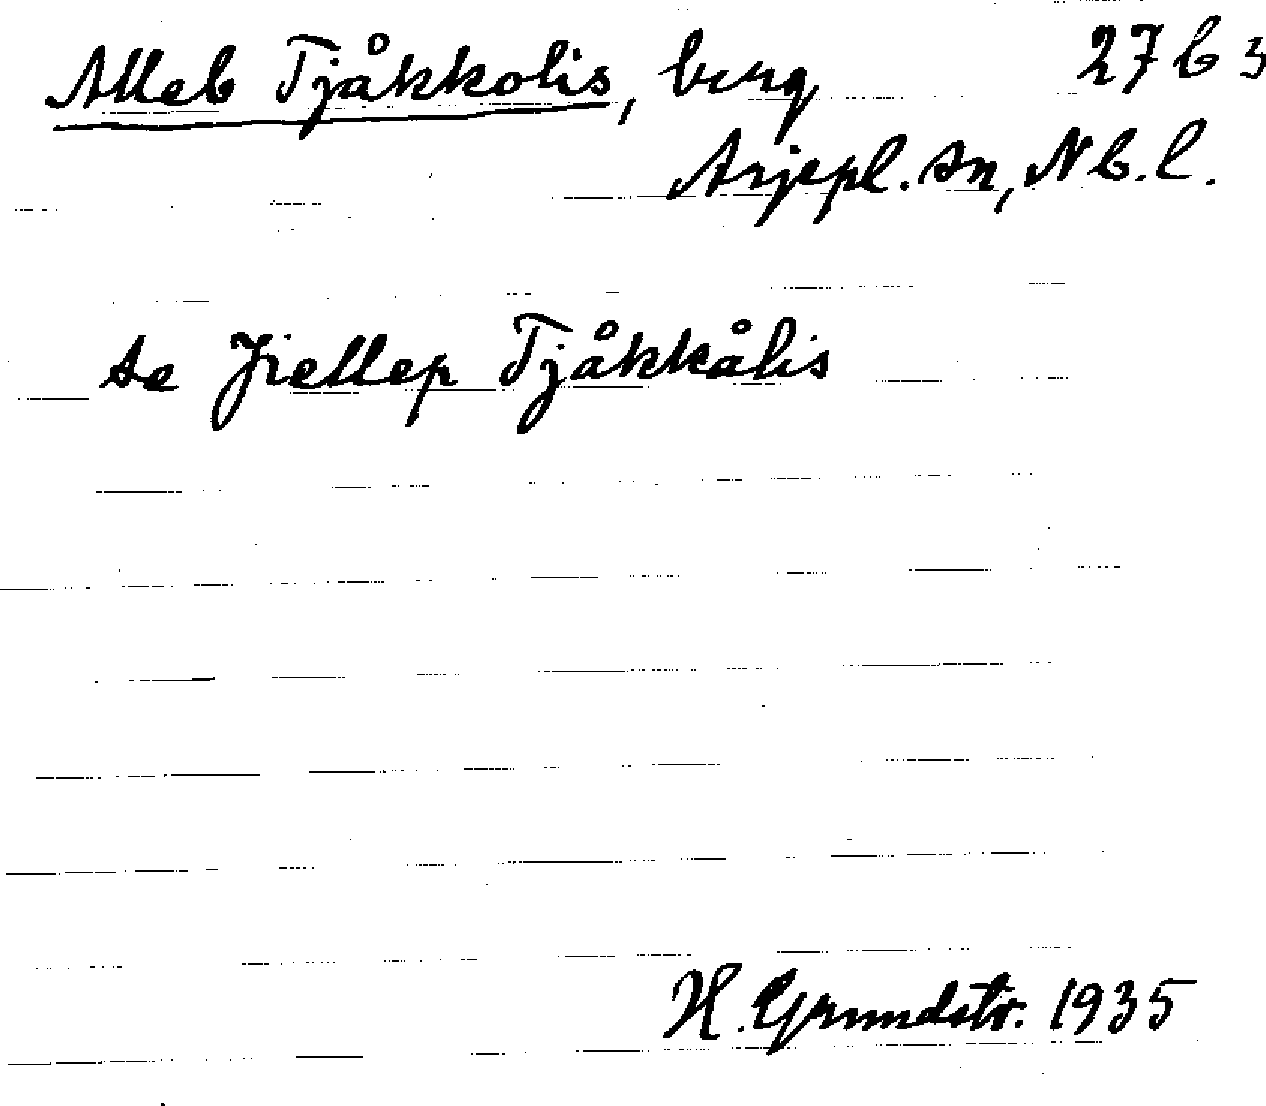 Alleb Tjåkkolis, berg 27b3
Arjepl. sn, Nb.l.
se Jiellep Tjåkkålis
H. Grundstr. 1935